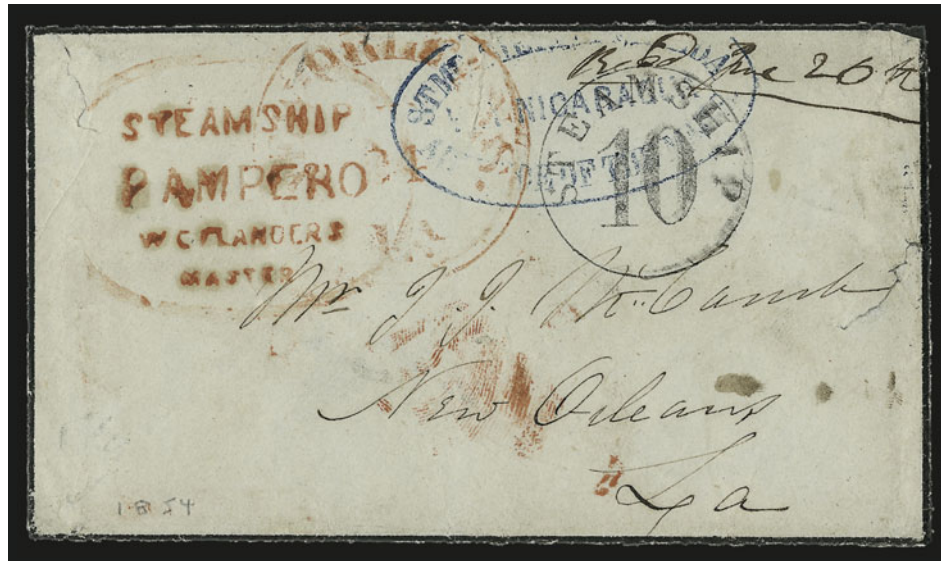 STEAMSHIP
PAMPERO
W C FLANDERS
MASTER
STMR
NICARAGUA
OF THE
STEAMSHIP
10
Recd June 26th
Mr J. J. McComb
New Orleans
La
1854